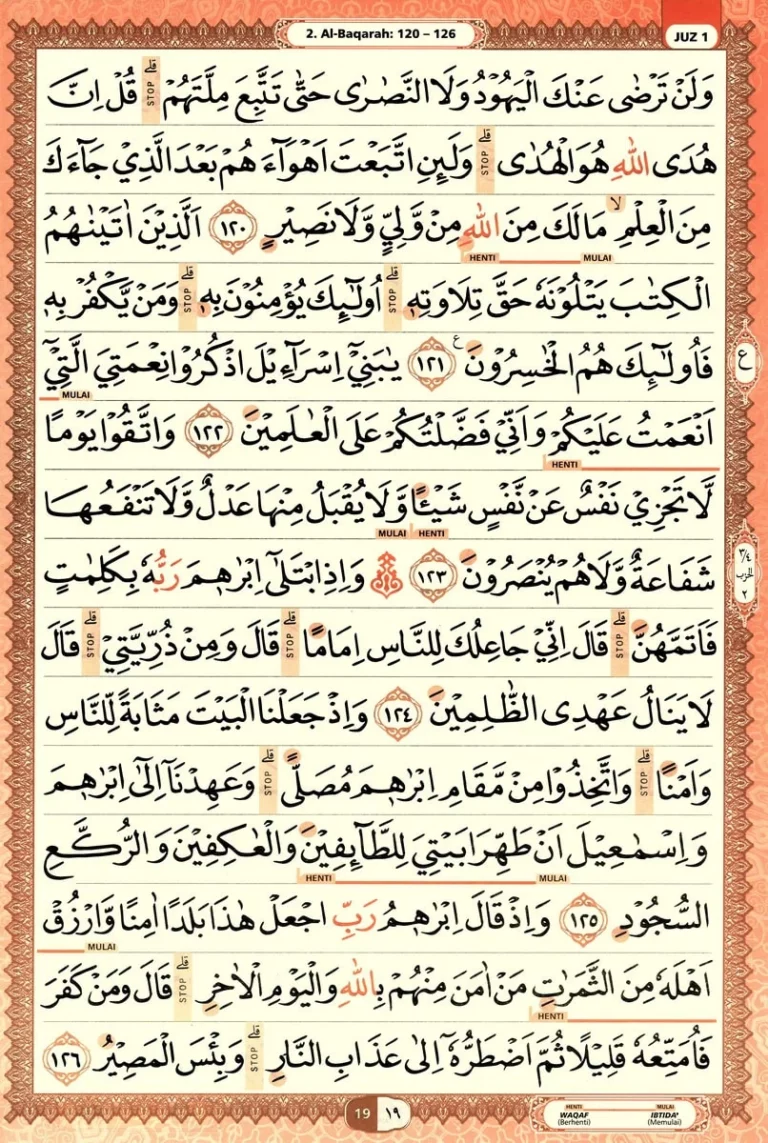 2. Al-Baqarah: 120 – 126
JUZ 1
وَلَنْ تَرْضٰى عَنْكَ الْيَهُوْدُ وَلَا النَّصٰرٰى حَتّٰى تَتَّبِعَ مِلَّتَهُمْ ۗ STOP قُلْ اِنَّ
هُدَى اللّٰهِ هُوَ الْهُدٰى ۗ STOP وَلَىِٕنِ اتَّبَعْتَ اَهْوَاۤءَهُمْ بَعْدَ الَّذِيْ جَاۤءَكَ
مِنَ الْعِلْمِ ۙ مَا لَكَ مِنَ اللّٰهِ مِنْ وَّلِيٍّ وَّلَا نَصِيْرٍ ١٢٠ اَلَّذِيْنَ اٰتَيْنٰهُمُ
MULAI HENTI
الْكِتٰبَ يَتْلُوْنَهٗ حَقَّ تِلَاوَتِهٖ ۗ STOP اُولٰۤىِٕكَ يُؤْمِنُوْنَ بِهٖ ۗ STOP وَمَنْ يَّكْفُرْ بِهٖ
فَاُولٰۤىِٕكَ هُمُ الْخٰسِرُوْنَ ع ١٢١ يٰبَنِيْٓ اِسْرَاۤءِيْلَ اذْكُرُوْا نِعْمَتِيَ الَّتِيْٓ
ع
MULAI
اَنْعَمْتُ عَلَيْكُمْ وَاَنِّيْ فَضَّلْتُكُمْ عَلَى الْعٰلَمِيْنَ ١٢٢ وَاتَّقُوْا يَوْمًا
HENTI
لَّا تَجْزِيْ نَفْسٌ عَنْ نَّفْسٍ شَيْـًٔا وَّلَا يُقْبَلُ مِنْهَا عَدْلٌ وَّلَا تَنْفَعُهَا
HENTI MULAI
شَفَاعَةٌ وَّلَا هُمْ يُنْصَرُوْنَ ١٢٣ وَاِذِ ابْتَلٰٓى اِبْرٰهٖمَ رَبُّهٗ بِكَلِمٰتٍ
٣/٤
الحزب
٢
فَاَتَمَّهُنَّ ۗ STOP قَالَ اِنِّيْ جَاعِلُكَ لِلنَّاسِ اِمَامًا ۗ STOP قَالَ وَمِنْ ذُرِّيَّتِيْ ۗ STOP قَالَ
لَا يَنَالُ عَهْدِى الظّٰلِمِيْنَ ١٢٤ وَاِذْ جَعَلْنَا الْبَيْتَ مَثَابَةً لِّلنَّاسِ
وَاَمْنًا ۗ STOP وَاتَّخِذُوْا مِنْ مَّقَامِ اِبْرٰهٖمَ مُصَلًّى ۗ STOP وَعَهِدْنَآ اِلٰٓى اِبْرٰهٖمَ
وَاِسْمٰعِيْلَ اَنْ طَهِّرَا بَيْتِيَ لِلطَّاۤىِٕفِيْنَ وَالْعٰكِفِيْنَ وَالرُّكَّعِ
MULAI HENTI
السُّجُوْدِ ١٢٥ وَاِذْ قَالَ اِبْرٰهٖمُ رَبِّ اجْعَلْ هٰذَا بَلَدًا اٰمِنًا وَّارْزُقْ
MULAI
اَهْلَهٗ مِنَ الثَّمَرٰتِ مَنْ اٰمَنَ مِنْهُمْ بِاللّٰهِ وَالْيَوْمِ الْاٰخِرِ ۗ STOP قَالَ وَمَنْ كَفَرَ
HENTI
فَاُمَتِّعُهٗ قَلِيْلًا ثُمَّ اَضْطَرُّهٗٓ اِلٰى عَذَابِ النَّارِ ۗ STOP وَبِئْسَ الْمَصِيْرُ ١٢٦
19 ١٩
HENTI MULAI
WAQAF IBTIDA'
(Berhenti) (Memulai)